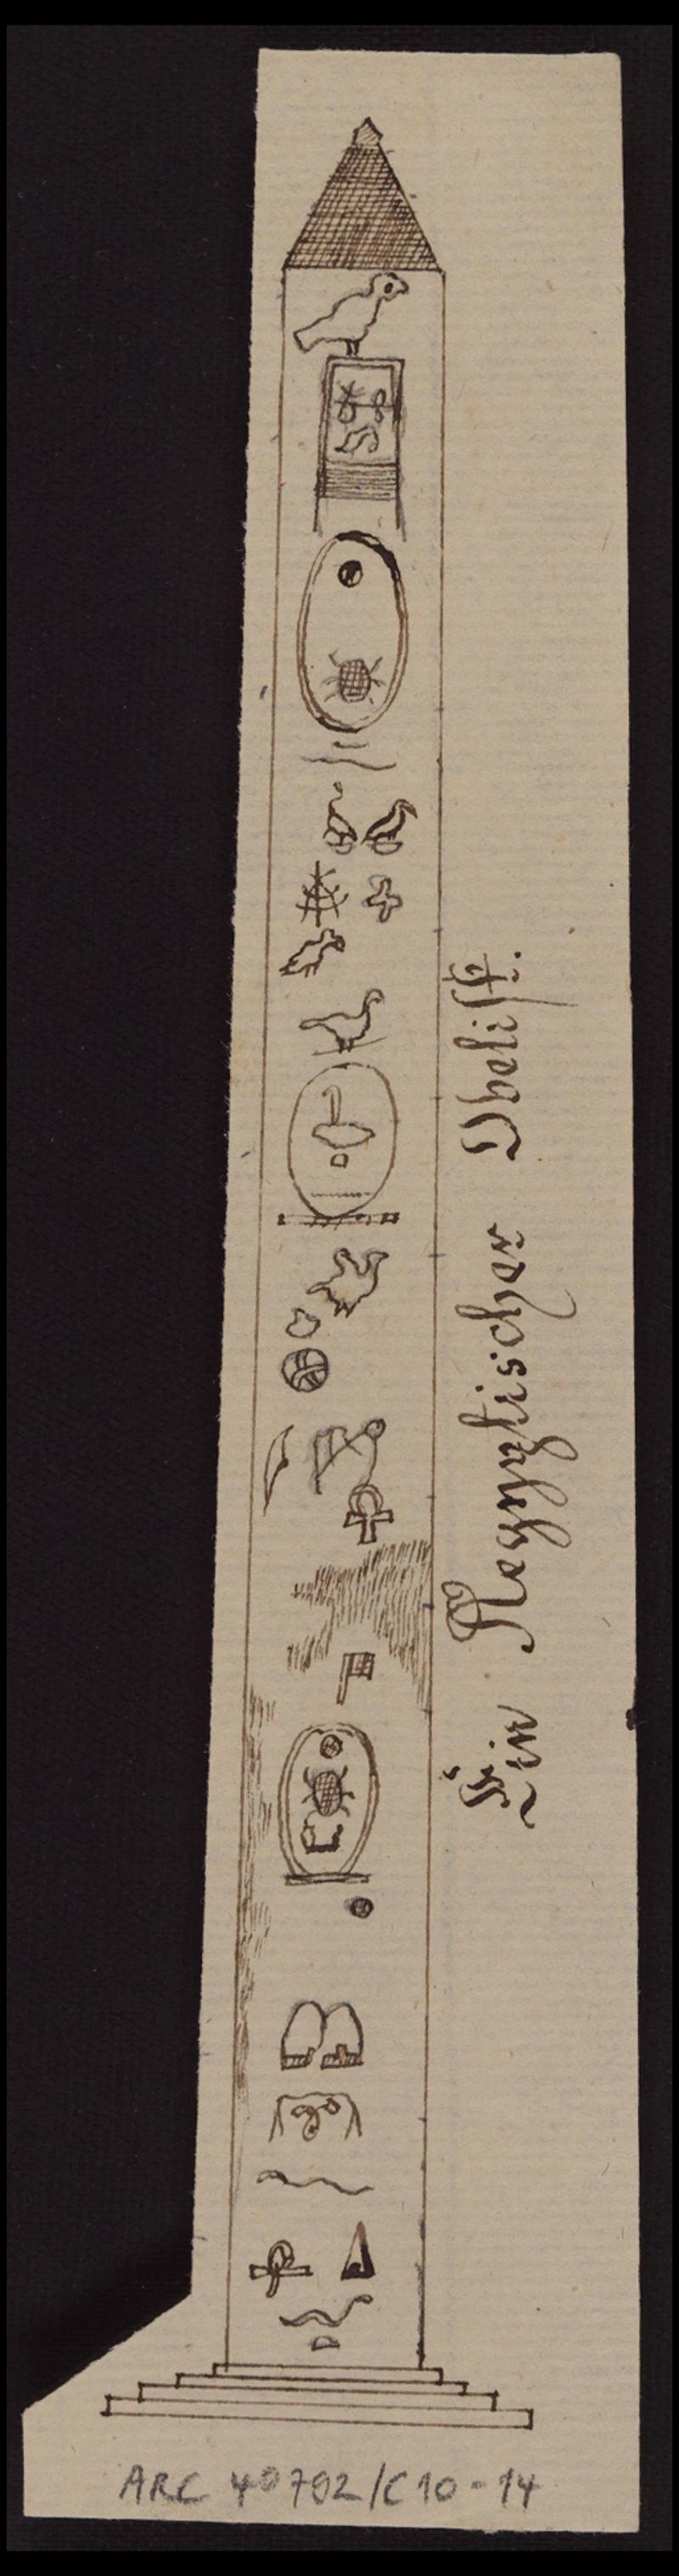 Ein Aegyptischer Obelisk.
ARC 40702/C10-14